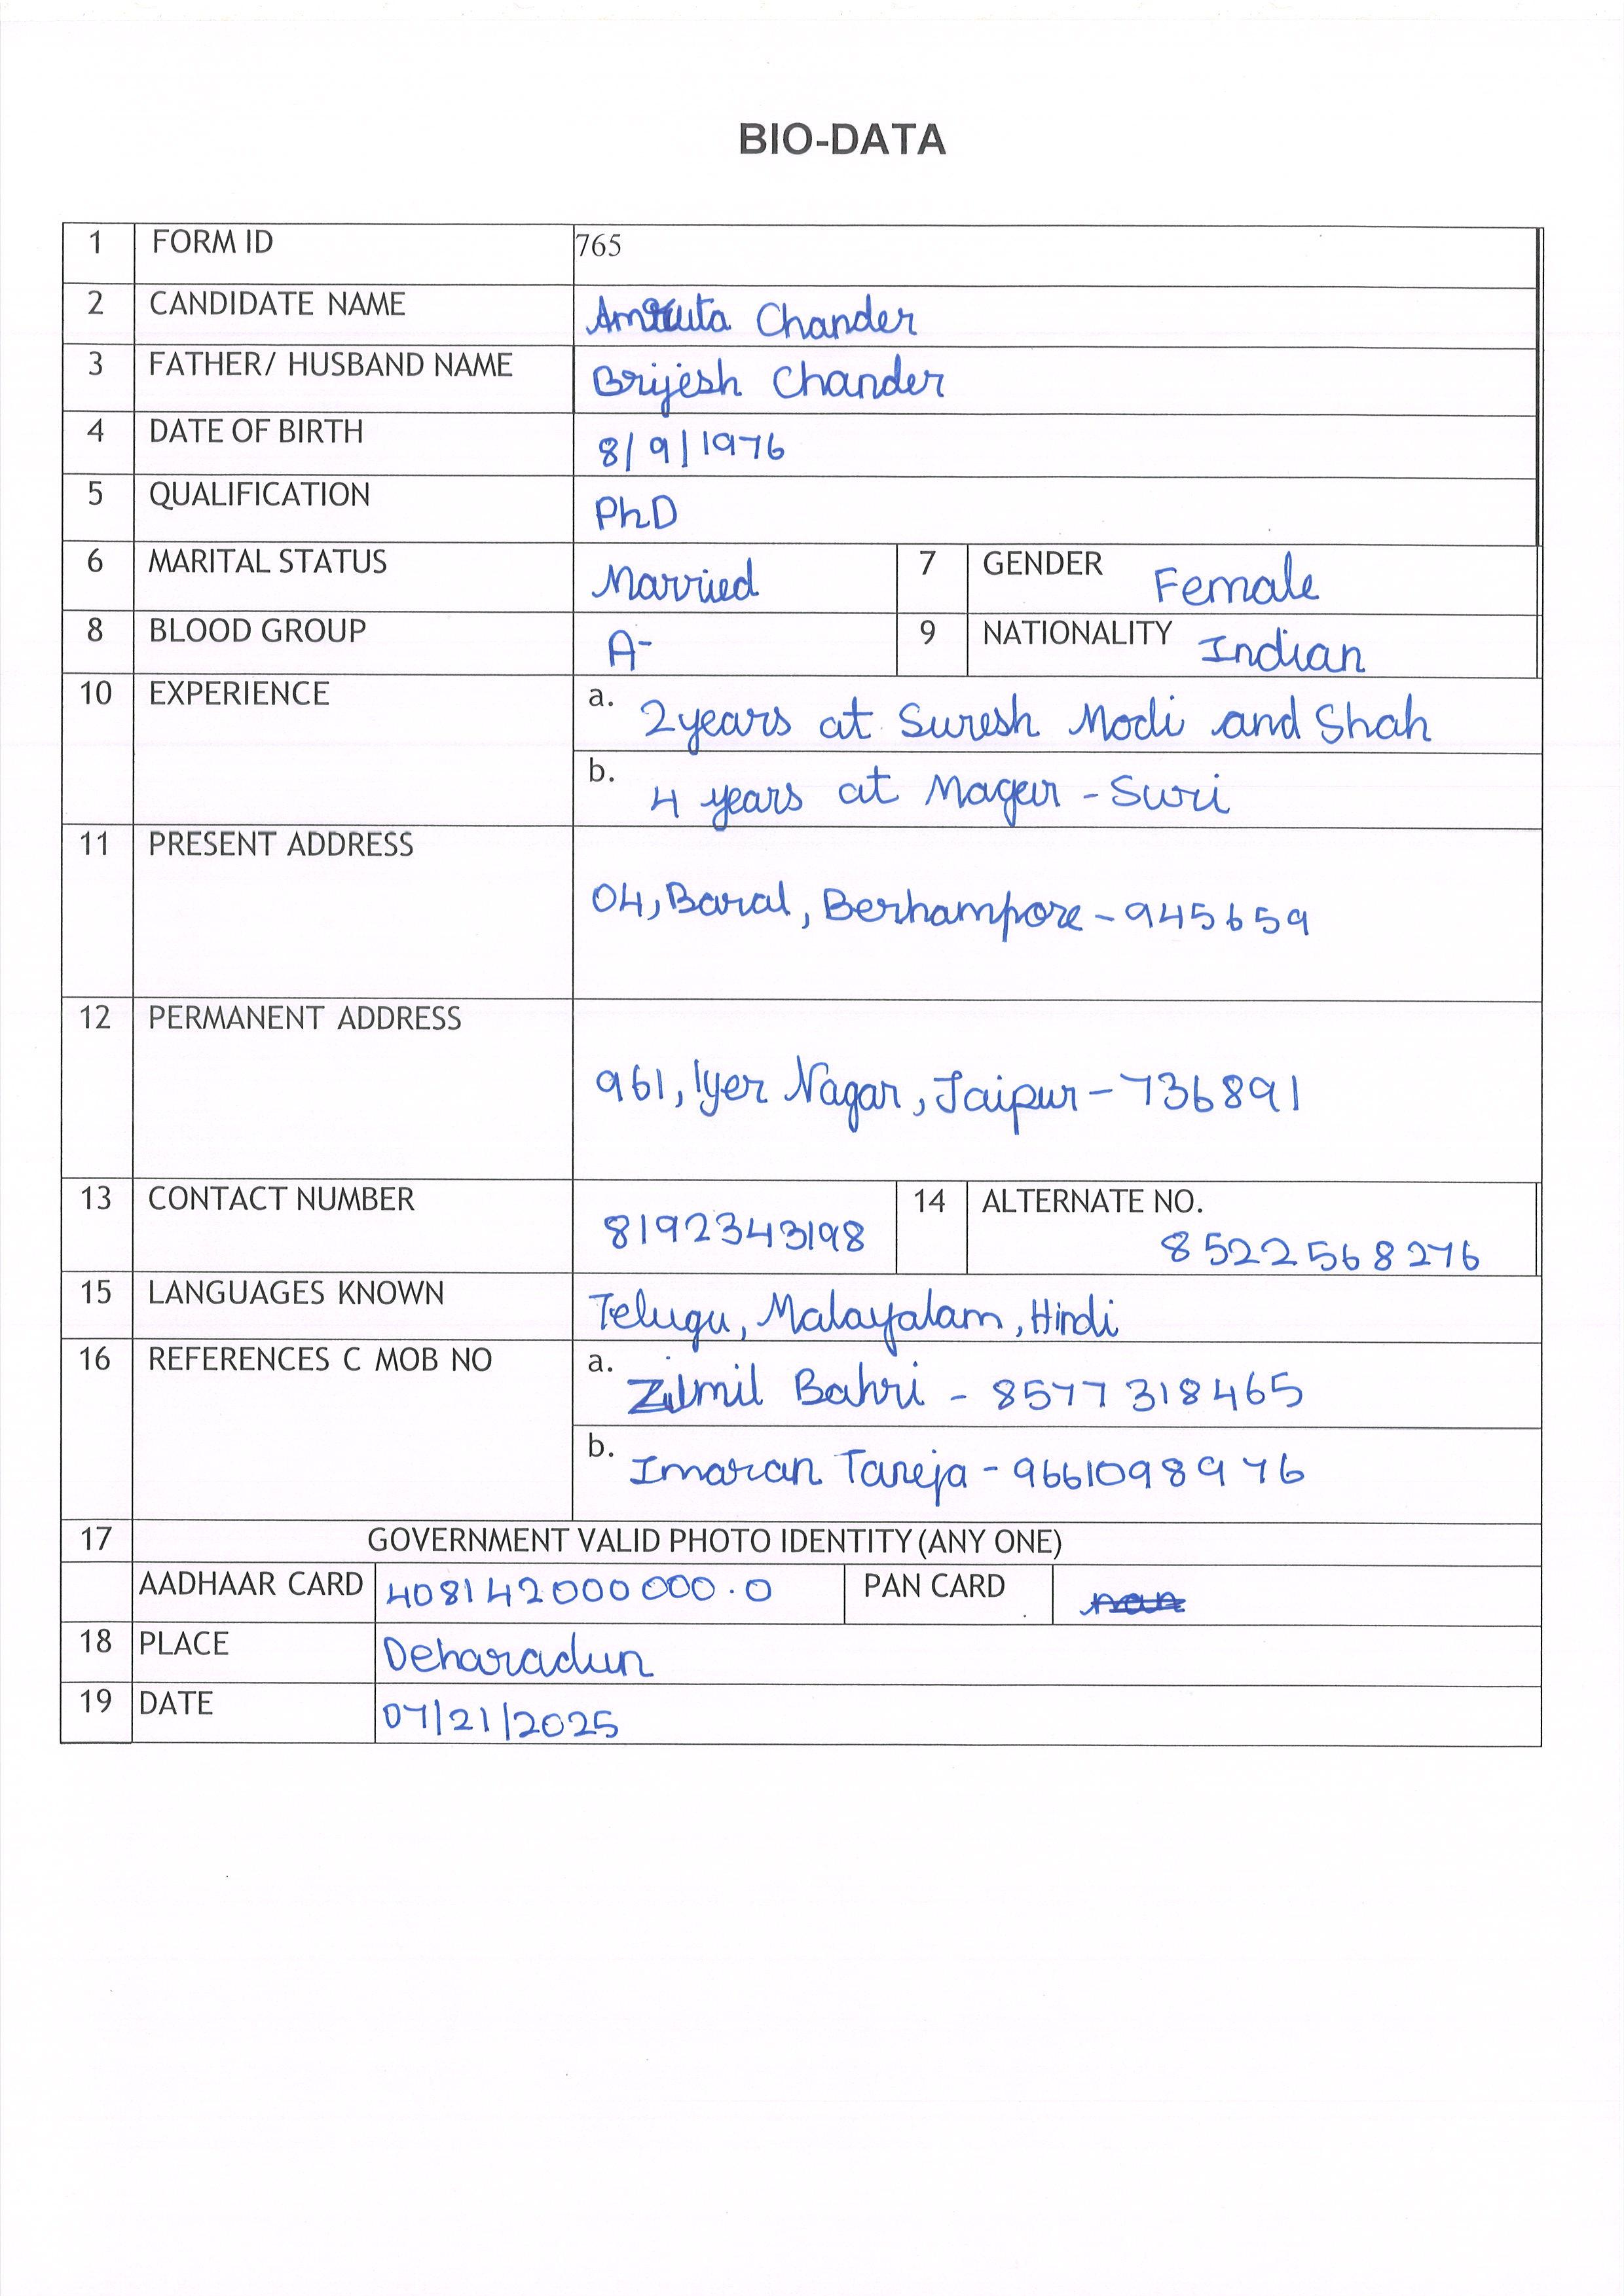 BIO-DATA
1 FORM ID 765
2 CANDIDATE NAME Chander
3 FATHER/ HUSBAND NAME Brijesh Chander
4 DATE OF BIRTH 8/9/1976
5 QUALIFICATION PhD
6 MARITAL STATUS Married 7 GENDER Female
8 BLOOD GROUP A- 9 NATIONALITY Indian
10 EXPERIENCE a. 2 years at Suresh Modi and Shah
b. 4 years at Magar - Suri
11 PRESENT ADDRESS
04, Baral, Berhampore - 945659
12 PERMANENT ADDRESS
961, Iyer Nagar, Jaipur - 736891
13 CONTACT NUMBER 8192343198 14 ALTERNATE NO. 8522568276
15 LANGUAGES KNOWN Telugu, Malayalam, Hindi
16 REFERENCES C MOB NO a. Bahri - 8577318465
b. Imaran Taneja - 9661098976
17 GOVERNMENT VALID PHOTO IDENTITY (ANY ONE)
AADHAAR CARD 408142000000.0 PAN CARD
18 PLACE Deharadun
19 DATE 07/21/2025